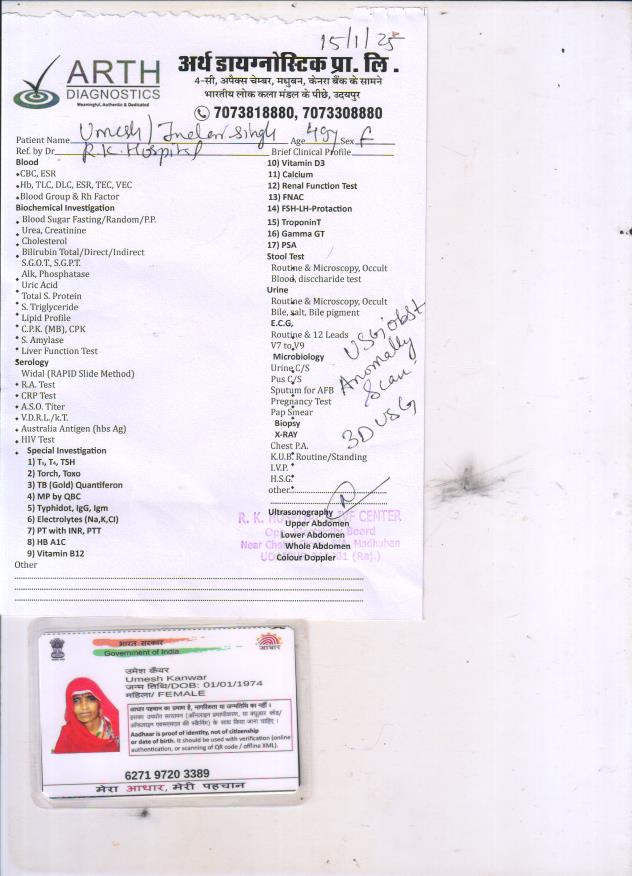 15/1/25
ARTH
DIAGNOSTICS
Meaningful, Authentic & Dedicated
अर्थ डायग्नोस्टिक प्रा. लि .
4-सी, अपैक्स चेम्बर, मधुबन, केनरा बैंक के सामने
भारतीय लोक कला मंडल के पीछे, उदयपुर
7073818880, 7073308880
Patient Name Umesh / Inder Singh Age 49y Sex F
Ref. by Dr R.K. Hospital Brief Clinical Profile
Blood
CBC, ESR
Hb, TLC, DLC, ESR, TEC, VEC
Blood Group & Rh Factor
Biochemical Investigation
Blood Sugar Fasting/Random/P.P.
Urea, Creatinine
Cholesterol
Bilirubin Total/Direct/Indirect
S.G.O.T., S.G.P.T.
Alk, Phosphatase
Uric Acid
Total S. Protein
S. Triglyceride
Lipid Profile
C.P.K. (MB), CPK
S. Amylase
Liver Function Test
Serology
Widal (RAPID Slide Method)
R.A. Test
CRP Test
A.S.O. Titer
V.D.R.L./k.T.
Australia Antigen (hbs Ag)
HIV Test
Special Investigation
1) T₃, T₄, TSH
2) Torch, Toxo
3) TB (Gold) Quantiferon
4) MP by QBC
5) Typhidot, IgG, Igm
6) Electrolytes (Na,K,Cl)
7) PT with INR, PTT
8) HB A1C
9) Vitamin B12
Other
10) Vitamin D3
11) Calcium
12) Renal Function Test
13) FNAC
14) FSH-LH-Protaction
15) TroponinT
16) Gamma GT
17) PSA
Stool Test
Routine & Microscopy, Occult
Blood, disccharide test
Urine
Routine & Microscopy, Occult
Bile, salt, Bile pigment
E.C.G,
Routine & 12 Leads
V7 to V9
Microbiology
Urine C/S
Pus C/S
Sputum for AFB
Pregnancy Test
Pap Smear
Biopsy
X-RAY
Chest P.A.
K.U.B. Routine/Standing
I.V.P.
H.S.G.
other
Ultrasonography
Upper Abdomen
Lower Abdomen
Whole Abdomen
Colour Doppler
USG obst
Anomally
Scan
3D USG
R. K. CENTER
Board
Near Madhuban
(Raj.)
भारत सरकार
Government of India
आधार
उमेश कँवर
Umesh Kanwar
जन्म तिथि/DOB: 01/01/1974
महिला/ FEMALE
आधार पहचान का प्रमाण है, नागरिकता या जन्मतिथि का नहीं ।
इसका उपयोग सत्यापन (ऑनलाइन प्रमाणीकरण, या क्यूआर कोड/
ऑफलाइन एक्सएमएल की स्कैनिंग) के साथ किया जाना चाहिए ।
Aadhaar is proof of identity, not of citizenship
or date of birth. It should be used with verification (online
authentication, or scanning of QR code / offline XML).
6271 9720 3389
मेरा आधार, मेरी पहचान